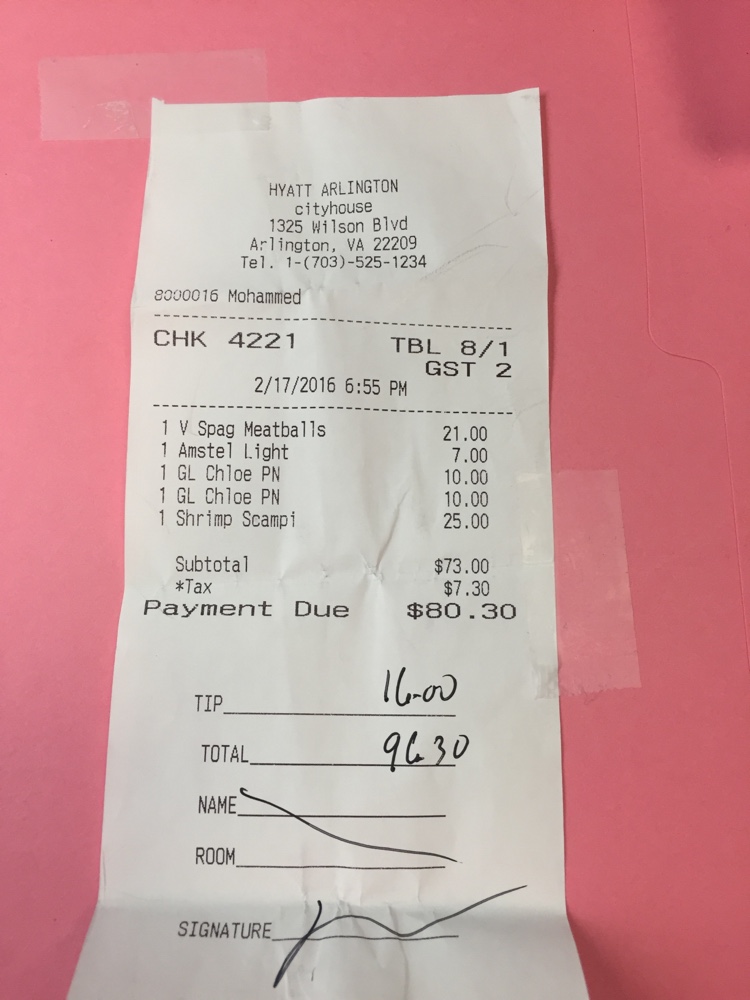 HYATT ARLINGTON
cityhouse
1325 Wilson Blvd
Arlington, VA 22209
Tel. 1-(703)-525-1234
8000016 Mohammed
CHK 4221 TBL 8/1
GST 2
2/17/2016 6:55 PM
1 V Spag Meatballs 21.00
1 Amstel Light 7.00
1 GL Chloe PN 10.00
1 GL Chloe PN 10.00
1 Shrimp Scampi 25.00
Subtotal $73.00
*Tax $7.30
Payment Due $80.30
TIP 16.00
TOTAL 96.30
NAME
ROOM
SIGNATURE